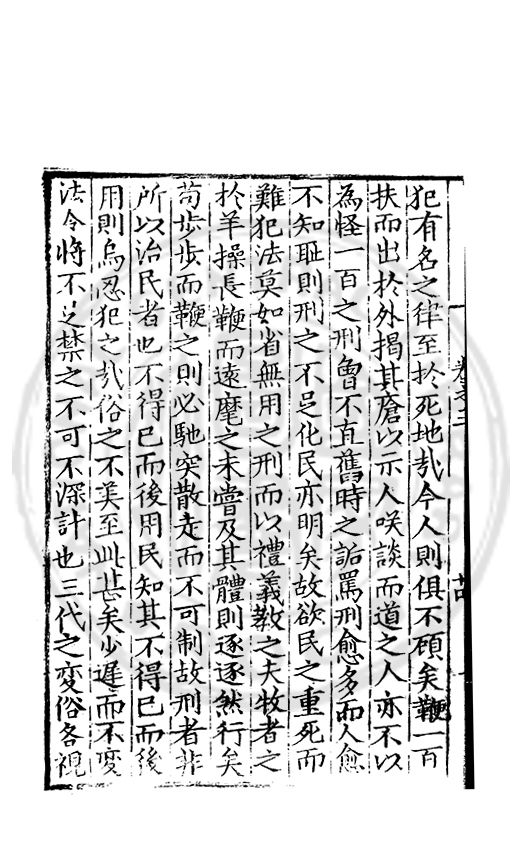 犯有名之律至於死地哉今人則俱不顧矣鞭一百
扶而出於外揭其瘡以示人咲談而道之人亦不以
為怪一百之刑曾不直舊時之詬罵刑愈多而人愈
不知耻則刑之不足化民亦明矣故欲民之重死而
難犯法莫如省無用之刑而以禮義教之夫牧者之
於羊操長鞭而遠麾之未嘗及其體則逐逐然行矣
苟步步而鞭之則必馳突散走而不可制故刑者非
所以治民者也不得已而後用民知其不得已而後
用則烏忍犯之哉俗之不美至此甚矣少遲而不変
法令將不足禁之不可不深計也三代之変俗各視